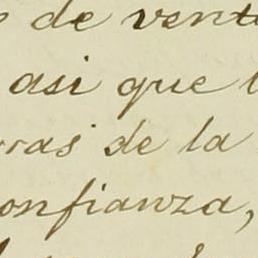 de vent
asi que
ras de la
onfianza,